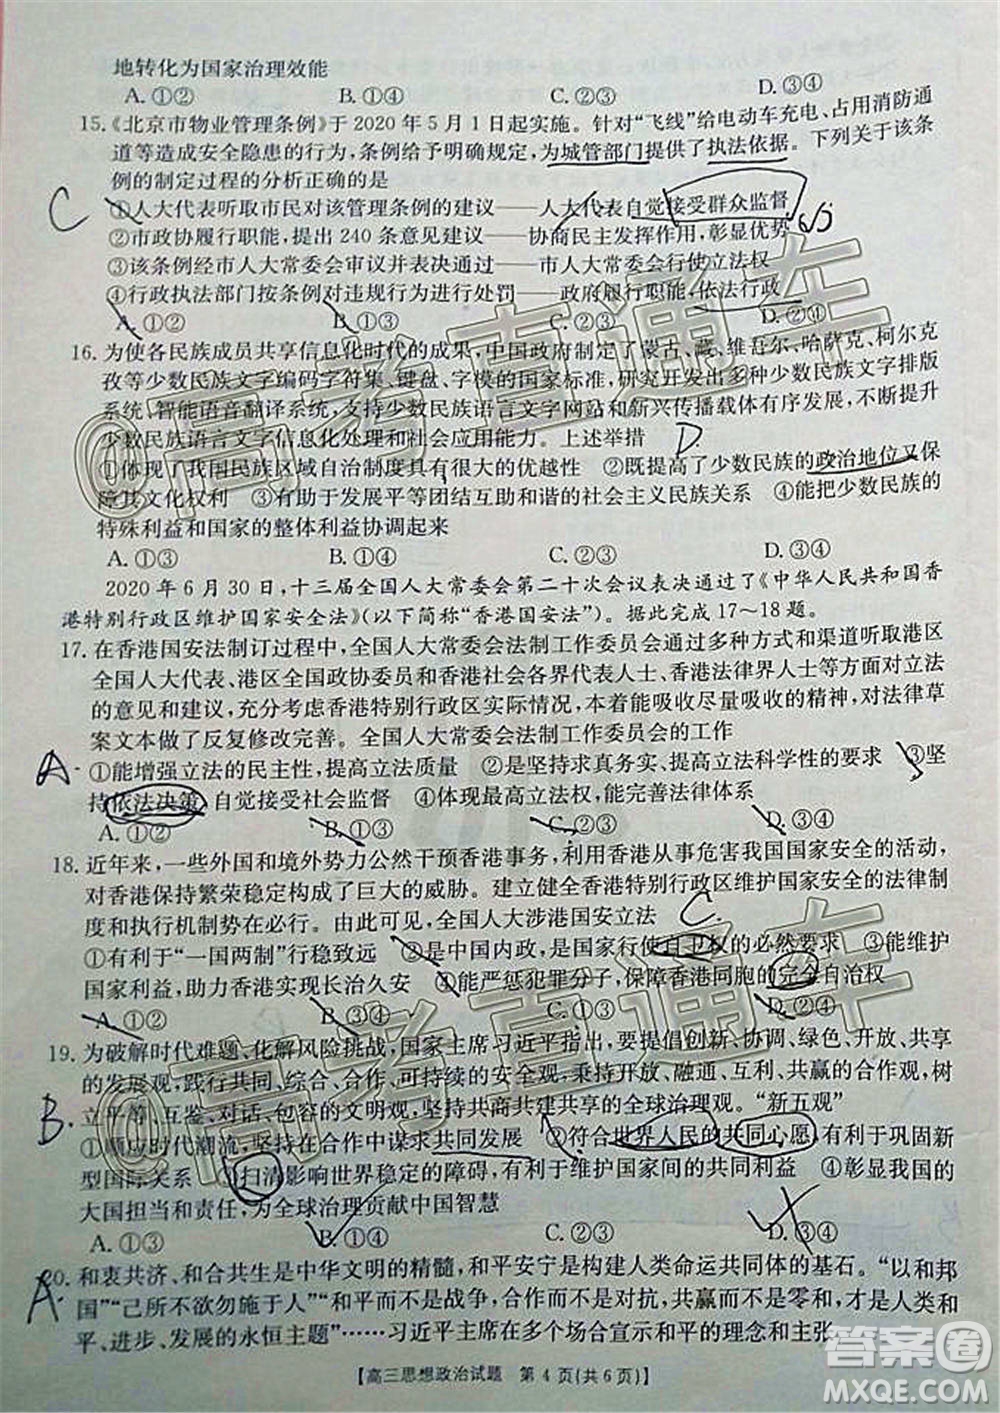 地转化为国家治理效能
A. ①② B. ①④ C. ②③ D. ③④
15. 《北京市物业管理条例》于 2020 年 5 月 1 日起实施。针对“飞线”给电动车充电、占用消防通
道等造成安全隐患的行为，条例给予明确规定，为城管部门提供了执法依据。下列关于该条
例的制定过程的分析正确的是
C
①人大代表听取市民对该管理条例的建议——人大代表自觉接受群众监督
②市政协履行职能，提出 240 条意见建议——协商民主发挥作用，彰显优势
③该条例经市人大常委会审议并表决通过——市人大常委会行使立法权
④行政执法部门按条例对违规行为进行处罚——政府履行职能，依法行政
A. ①③ B. ①④ C. ②③ D. ②④
16. 为使各民族成员共享信息化时代的成果，中国政府制定了蒙古、藏、维吾尔、哈萨克、柯尔克
孜等少数民族文字编码字符集、键盘、字模的国家标准，研究开发出多种少数民族文字排版
系统、智能语音翻译系统，支持少数民族语言文字网站和新兴传播载体有序发展，不断提升
少数民族语言文字信息化处理和社会应用能力。上述举措 D.
①体现了我国民族区域自治制度具有很大的优越性 ②既提高了少数民族的政治地位又保
障其文化权利 ③有助于发展平等团结互助和谐的社会主义民族关系 ④能把少数民族的
特殊利益和国家的整体利益协调起来
A. ①③ B. ①④ C. ②③ D. ②④
2020 年 6 月 30 日，十三届全国人大常委会第二十次会议表决通过了《中华人民共和国香
港特别行政区维护国家安全法》（以下简称“香港国安法”）。据此完成 17～18 题。
17. 在香港国安法制订过程中，全国人大常委会法制工作委员会通过多种方式和渠道听取港区
全国人大代表、港区全国政协委员和香港社会各界代表人士、香港法律界人士等对立法
的意见和建议，充分考虑香港特别行政区实际情况，本着能吸收尽量吸收的精神，对法律草
案文本做了反复修改完善。全国人大常委会法制工作委员会的工作
A.
①能增强立法的民主性，提高立法质量 ②是坚持求真务实、提高立法科学性的要求 ③坚
持依法决策，自觉接受社会监督 ④能实现最高立法权，能完善法律体系
A. ①② B. ①③ C. ②④ D. ③④
18. 近年来，一些外国和境外势力公然干预香港事务，利用香港从事危害我国国家安全的活动，
对香港保持繁荣稳定构成了巨大的威胁。建立健全香港特别行政区维护国家安全的法律制
度和执行机制势在必行。由此可见，全国人大涉港国安立法 C.
①有利于“一国两制”行稳致远 ②是中国内政，是国家行使自卫权的必然要求 ③能维护
国家利益，助力香港实现长治久安 ④能严惩犯罪分子，保障香港同胞的完全自治权
A. ①② B. ③④ C. ①③ D. ②④
19. 为破解时代难题、化解风险挑战，国家主席习近平指出，要提倡创新、协调、绿色、开放、共享
的发展观，践行共同、综合、合作、可持续的安全观，秉持开放、融通、互利、共赢的合作观，树
立平等、互鉴、对话、包容的文明观，坚持共商共建共享的全球治理观。“新五观”
B.
①顺应时代潮流，坚持在合作中谋求共同发展 ②符合世界人民的共同心愿，有利于巩固新
型国际关系 ③扫清影响世界稳定的障碍，有利于维护国家间的共同利益 ④彰显我国的
大国担当和责任，为全球治理贡献中国智慧
A. ①③ B. ①④ C. ②③ D. ③④
A.
20. 和衷共济、和合共生是中华文明的精髓，和平安宁是构建人类命运共同体的基石。“以和邦
国”“己所不欲勿施于人”“和平而不是战争，合作而不是对抗，共赢而不是零和，才是人类和
平、进步、发展的永恒主题”……习近平主席在多个场合宣示和平的理念和主张
【高三思想政治试题 第 4 页（共 6 页）】
@高考直通车
@高考直通车
答案圈
MXQE.COM